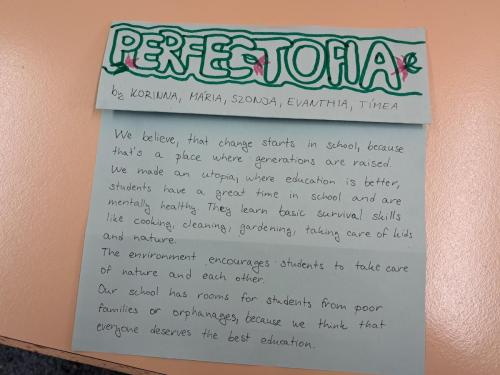 PERFECTOPIA
by KORINNA, MÁRIA, SZONJA, EVANTHIA, TÍMEA
We believe, that change starts in school, because
that's a place where generations are raised.
We made an utopia, where education is better,
students have a great time in school and are
mentally healthy. They learn basic survival skills
like cooking, cleaning, gardening, taking care of kids
and nature.
The environment encourages students to take care
of nature and each other.
Our school has rooms for students from poor
families or orphanages, because we think that
everyone deserves the best education.